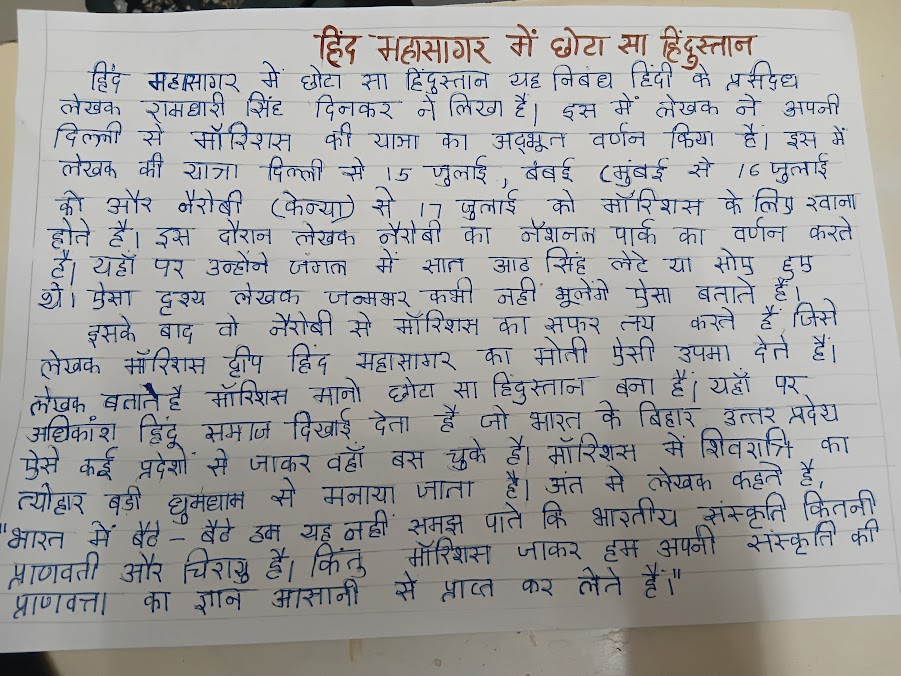 हिंद महासागर में छोटा सा हिंदुस्तान
हिंद महासागर में छोटा सा हिंदुस्तान यह निबंध हिंदी के प्रसिद्ध
लेखक रामधारी सिंह दिनकर ने लिखा है। इस में लेखक ने अपनी
दिल्ली से मॉरिशस की यात्रा का अद्भूत वर्णन किया है। इस में
लेखक की यात्रा दिल्ली से 15 जुलाई, बंबई (मुंबई से 16 जुलाई
को और नैरोबी (केन्या) से 17 जुलाई को मॉरिशस के लिए रवाना
होते है। इस दौरान लेखक नैरोबी का नॅशनल पार्क का वर्णन करते
है। यहाँ पर उन्होंने जंगल में सात आठ सिंह लेटे या सोए हुए
थे। ऐसा दृश्य लेखक जन्मभर कभी नहीं भूलेंगे ऐसा बताते है।
इसके बाद वो नैरोबी से मॉरिशस का सफर तय करते हैं जिसे
लेखक मॉरिशस द्वीप हिंद महासागर का मोती ऐसी उपमा देते हैं।
लेखक बताते है मॉरिशस मानो छोटा सा हिंदुस्तान बना है। यहाँ पर
अधिकांश हिंदू समाज दिखाई देता है जो भारत के बिहार उत्तर प्रदेश
ऐसे कई प्रदेशों से जाकर वहाँ बस चुके है। मॉरिशस में शिवरात्रि का
त्योहार बडी धुमधाम से मनाया जाता है। अंत मे लेखक कहते है,
"भारत में बैठे - बैठे हम यह नहीं समझ पाते कि भारतीय संस्कृति कितनी
प्राणवती और चिरायु है। किंतु मॉरिशस जाकर हम अपनी संस्कृति की
प्राणवत्ता का ज्ञान आसानी से प्राप्त कर लेते है।"